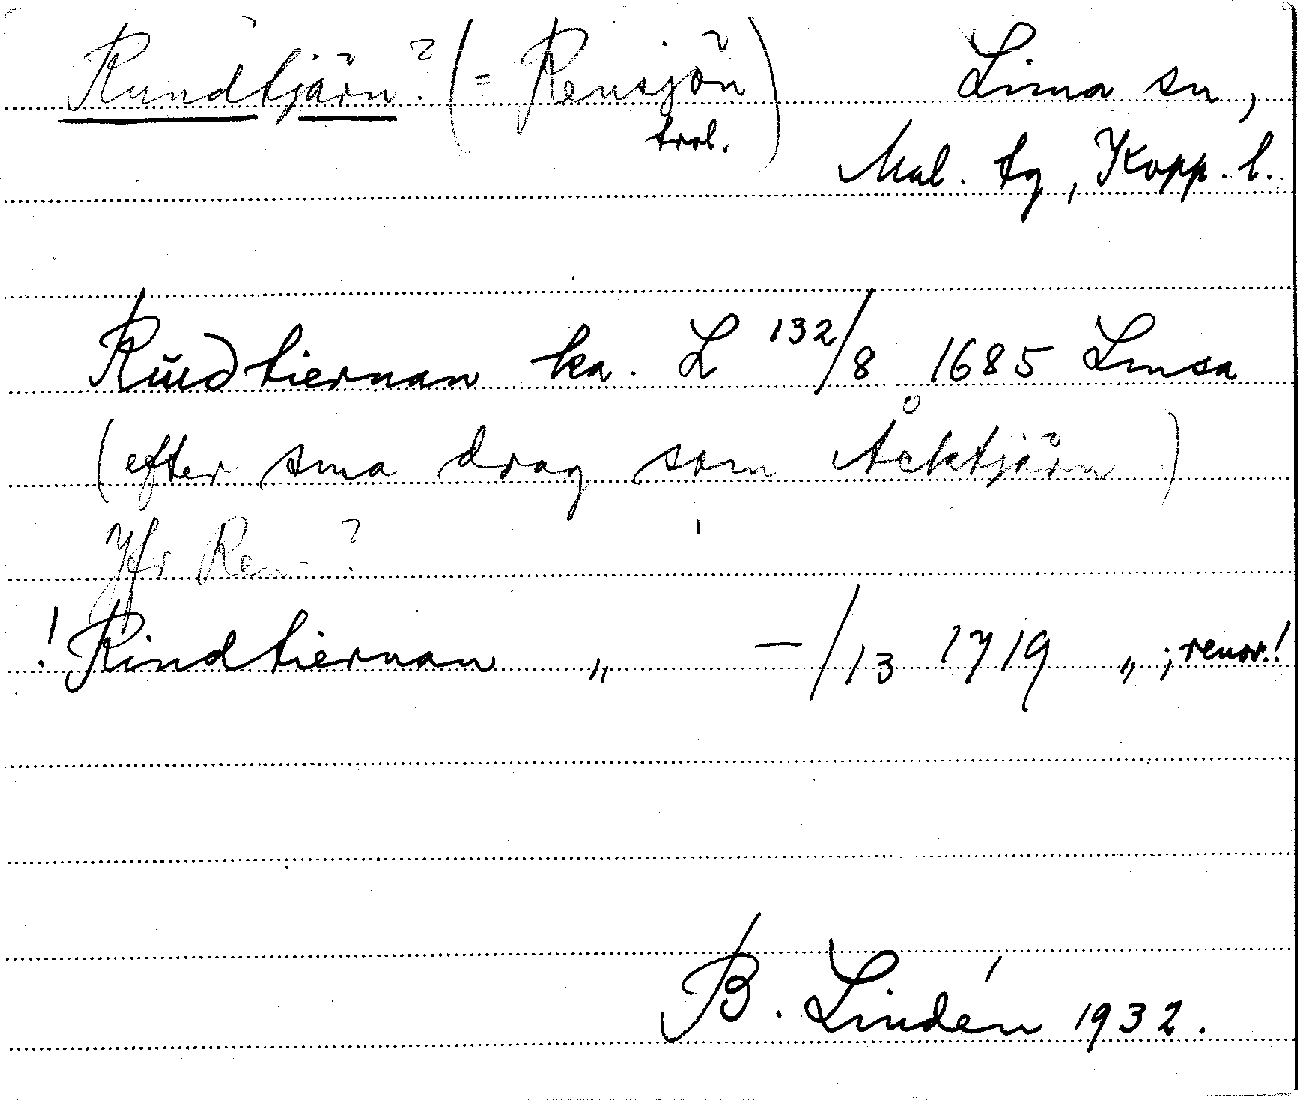 Rundtjärn? (= Rensjön) Lima sn,
trol.
Mal. tg, Kopp. l.
Rŭndtiernan ka. L 132/8 1685 Limsa
(efter sma drag som Åcktjärn)
Jfr Ren- ?
! Rindtiernan „ —/13 1719 „ ; renov.!
B. Lindén 1932.